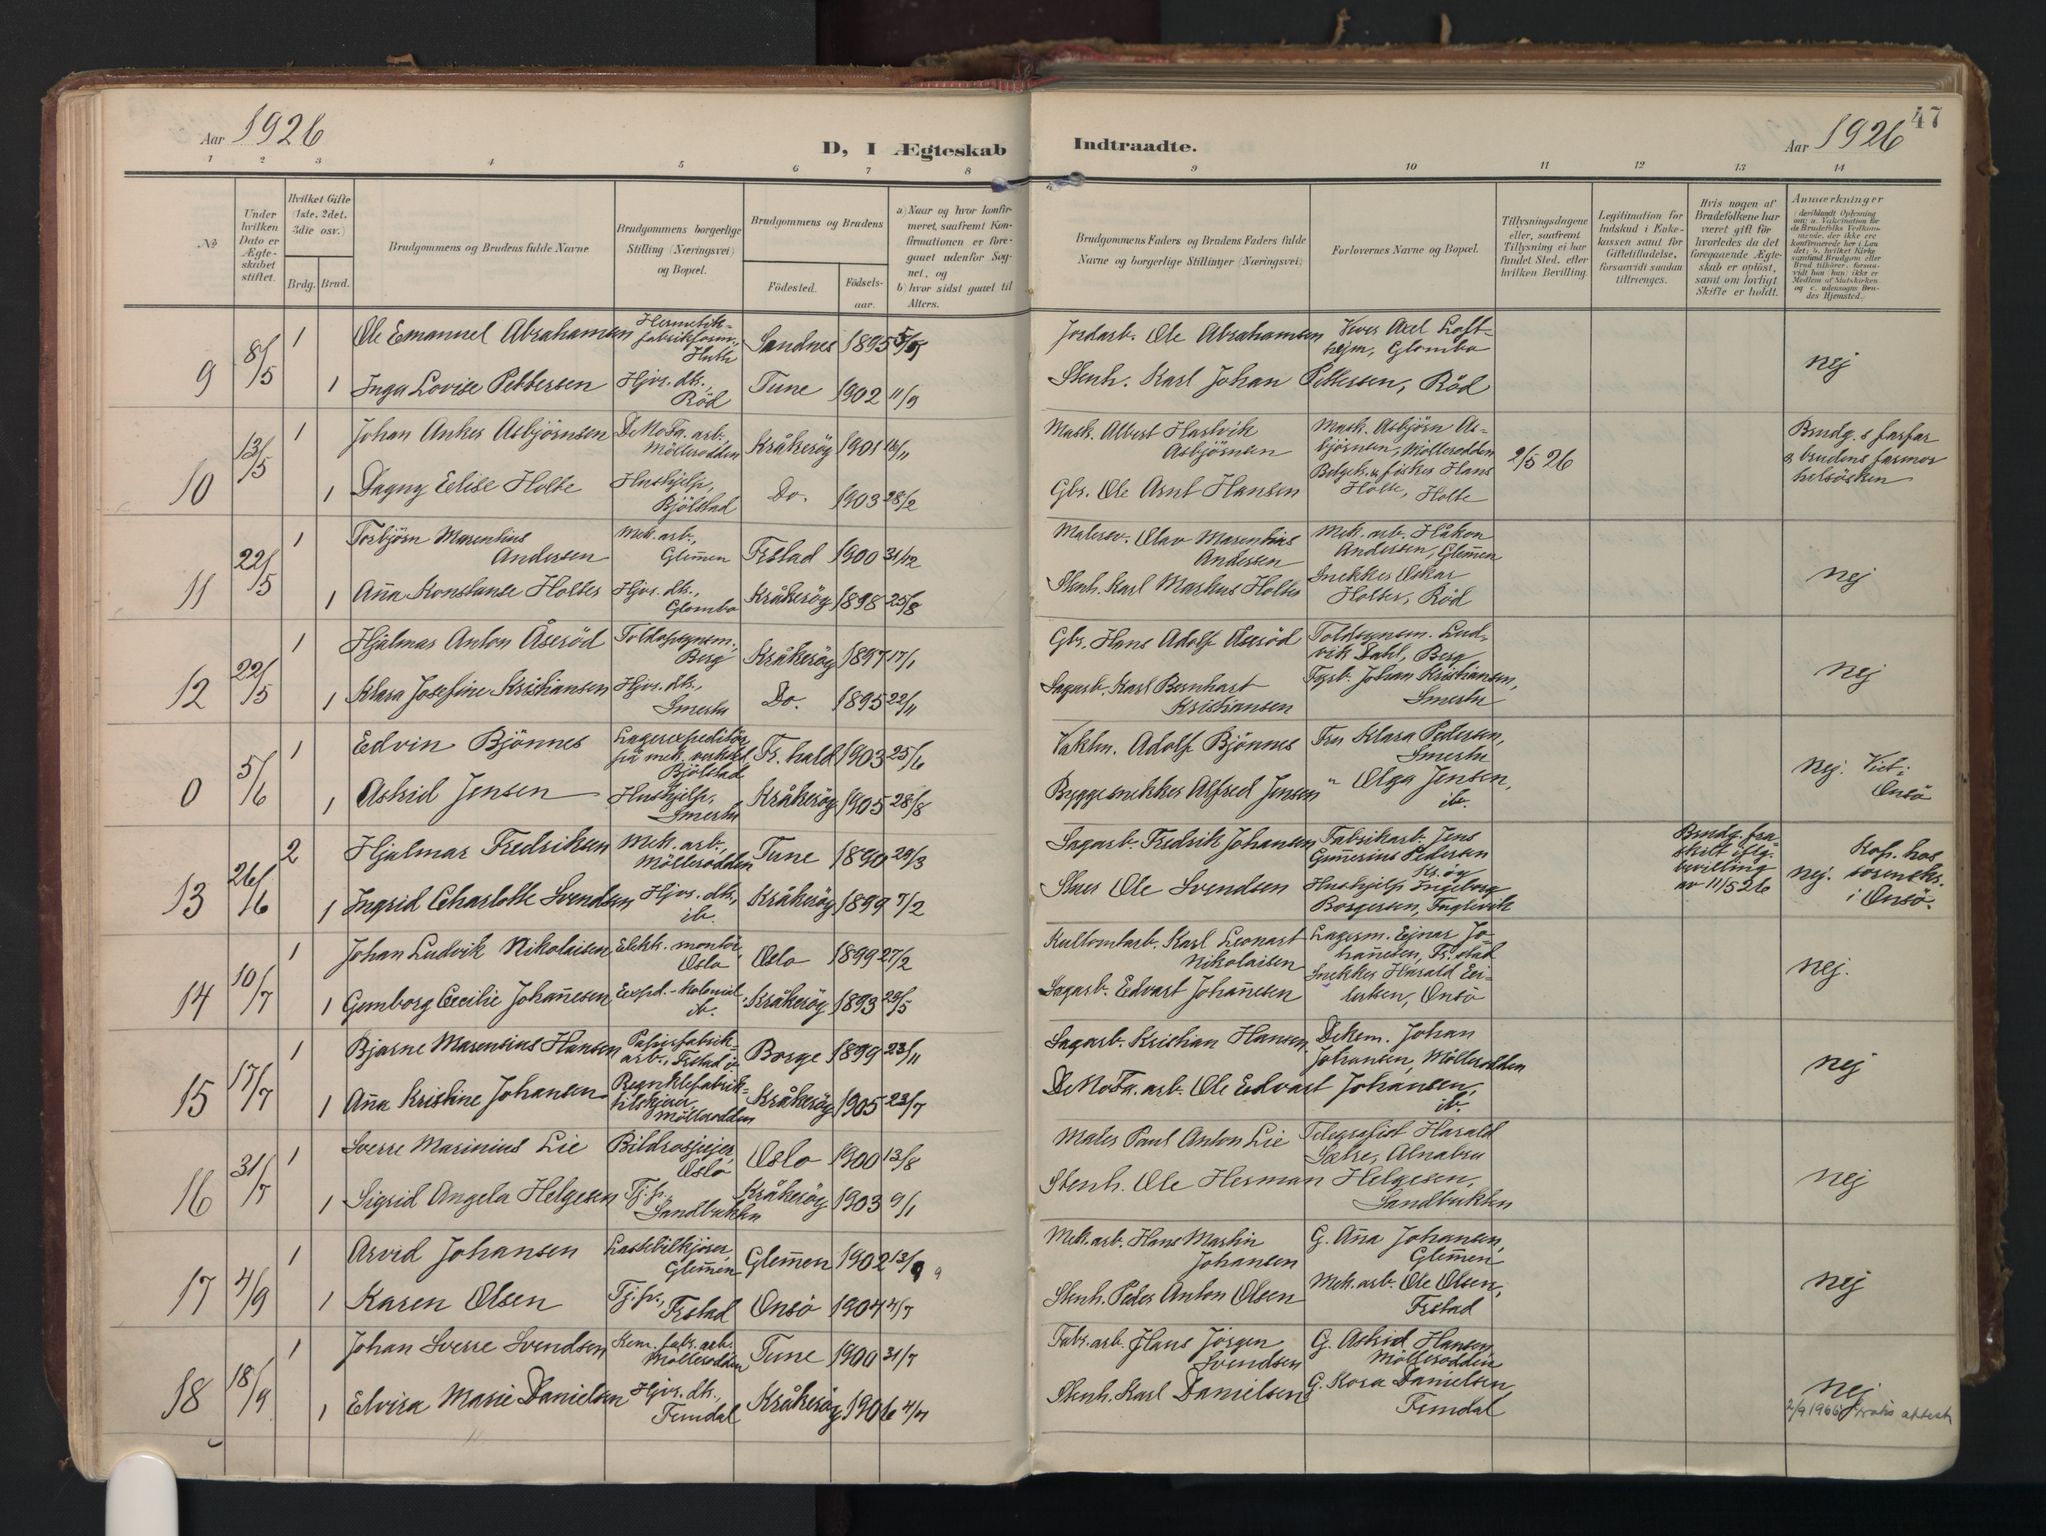 47
Aar 1926
D, I Ægteskab Indtraadte.
Aar 1926
1 2 3 4 5 6 7 8 9 10 11 12 13 14
No
Under hvilken Dato er Ægteskabet stiftet.
Hvilket Gifte (1ste, 2det, 3die osv.)
Brdg. Brud.
Brudgommens og Brudens fulde Navne
Brudgommens borgerlige Stilling (Næringsvei) og Bopæl.
Brudgommens og Brudens
Födested. Födselsaar.
a) Naar og hvor konfirmeret, saafremt Konfirmationen er foregaaet udenfor Sognet, og
b) hvor sidst gaaet til Alters.
Brudgommens Faders og Brudens Faders fulde Navne og borgerlige Stillinger (Næringsvei)
Forlovernes Navne og Bopæl.
Tillysningsdagene eller, saafremt Tillysning ei har fundet Sted, efter hvilken Bevilling.
Legitimation for Indskud i Enkekassen samt for Giftetilladelse, forsaavidt saadan tiltrænges.
Hvis nogen af Brudefolkene har været gift før hvorledes da det foregaaende Ægteskab er oplöst, samt om lovligt Skifte er holdt.
Anmærkninger
9 8/5 1 Ole Emanuel Abrahamsen Hermetikfabrikform., Sandnes 1895 Jordarb. Ole Abrahamsen Axel Lofthejm, Glombo
1 Inga Lovise Pettersen Hjvs. dtr., Röd Tune 1902 11/9 Stenh. Karl Johan Pettersen, Röd nej
10 13/5 1 Johan Anker Asbjörnsen DeNoFa. arb. Mölleroddén Kråkeröy 1901 16/11 Mask. Albert Hartvik Asbjörnsen Mask. Asbjörn Asbjörnsen, Mölleroddén 2/5 26 Brudg.s farfar & brudens farmor helsösken
1 Dagny Elise Holte Hushjelp, Bjölstad Do. 1903 28/2 Gbr. Ole Arnt Hansen fisker Hans Holte, Holte
11 22/5 1 Torbjörn Marentius Andersen Mek. arb., Glemmen Frstad 1900 31/12 Malersv. Olav Marentius Andersen Mek. arb. Håkon Andersen, Glemmen
1 Anna Konstanse Holter Hjvs. dtr., Glombo Kråkeröy 1898 25/8 Stenh. Karl Markus Holter Snekker Oskar Holter, Röd nej
12 22/5 1 Hjalmar Anton Åseröd Toldopsynsm., Berg Kråkeröy 1897 17/1 Gbr. Hans Adolf Åseröd Toldopsynsm. Ludvik Dahl, Berg
1 Klara Josefine Kristiansen Hjvs. dtr., Smertu Do. 1895 22/11 Sagarb. Karl Bernhart Kristiansen Johan Kristiansen, Smertu nej
0 5/6 1 Edvin Bjönnes Lagerexpeditör på mek. verksted Bjölstad Fr.hald 1903 25/6 Vaktm. Adolf Bjönnes Frø Klara Pedersen, Smertu
1 Astrid Jensen Hushjelp, Smertu Kråkeröy 1905 28/8 Byggesnekker Alfred Jensen " Olga Jensen, ib. nej. Viet i Onsö
13 26/6 2 Hjalmar Fredriksen Mek. arb., Mölleroddén Tune 1890 Sagarb. Fredrik Johansen Fabrikarb. Jens Gunerius Pedersen Kr.öy Brudg. fraskilt iflg. bevilling av 11/5 26
1 Ingrid Charlotte Svendsen Hjvs. dtr., ib. Kråkeröy 1899 7/2 Ole Svendsen Hushjelp Ingeborg Borgersen, Enghavik nej. Kop. hos sorenskr. i Onsö.
14 10/7 1 Johan Ludvik Nikolaisen Elektr. montör, Oslo Oslo 1899 27/2 Karl Leonart Nikolaisen Lagerm. Ejnar Johannesen, Fr.stad
1 Gunborg Cecilie Johannesen Exped. - Kolonial, ib. Kråkeröy 1893 29/5 Sagarb. Edvart Johannesen Snekker Harald Eilertsen, Onsö nej.
15 17/7 1 Bjarne Marensius Hansen Papirfabrikarb., Frstad Borge 1899 23/11 Sagarb. Kristian Hansen Johan Johansen, Mölleroddén
1 Anna Kristine Johansen Mölleroddén Kråkeröy 1905 23/7 DeNoFa. arb. Ole Edvart Johansen, ib. nej
16 31/7 1 Sverre Marinius Lie Bildrosjeejer, Oslo Oslo 1900 13/8 Maler Paul Anton Lie Telegrafist Harald Sætre, Alnabru
1 Sigrid Angela Helgesen Tj.p., Sandbukten Kråkeröy 1903 9/1 Stenh. Ole Herman Helgesen, Sandbukten nej
17 4/9 1 Arvid Johansen Lastebilkjörer, Glemmen Glemmen 1902 13/9 9 Mek. arb. Hans Martin Johansen G. Anna Johansen, Glemmen
1 Karen Olsen Tj.p., Frstad Onsö 1904 4/7 Stenh. Peder Anton Olsen Mek. arb. Ole Olsen, Frstad nej
18 18/9 1 Johan Sverre Svendsen Kem. fabr. arb. Mölleroddén Tune 1900 31/7 Fabr. arb. Hans Jörgen Svendsen G. Astrid Hansen Mölleroddén
1 Elvira Marie Danielsen Hjvs. dtr., Femdal Kråkeröy 1906 4/7 Stenh. Karl Danielsen G. Kora Danielsen, Femdal nej
2/9 1966 attest